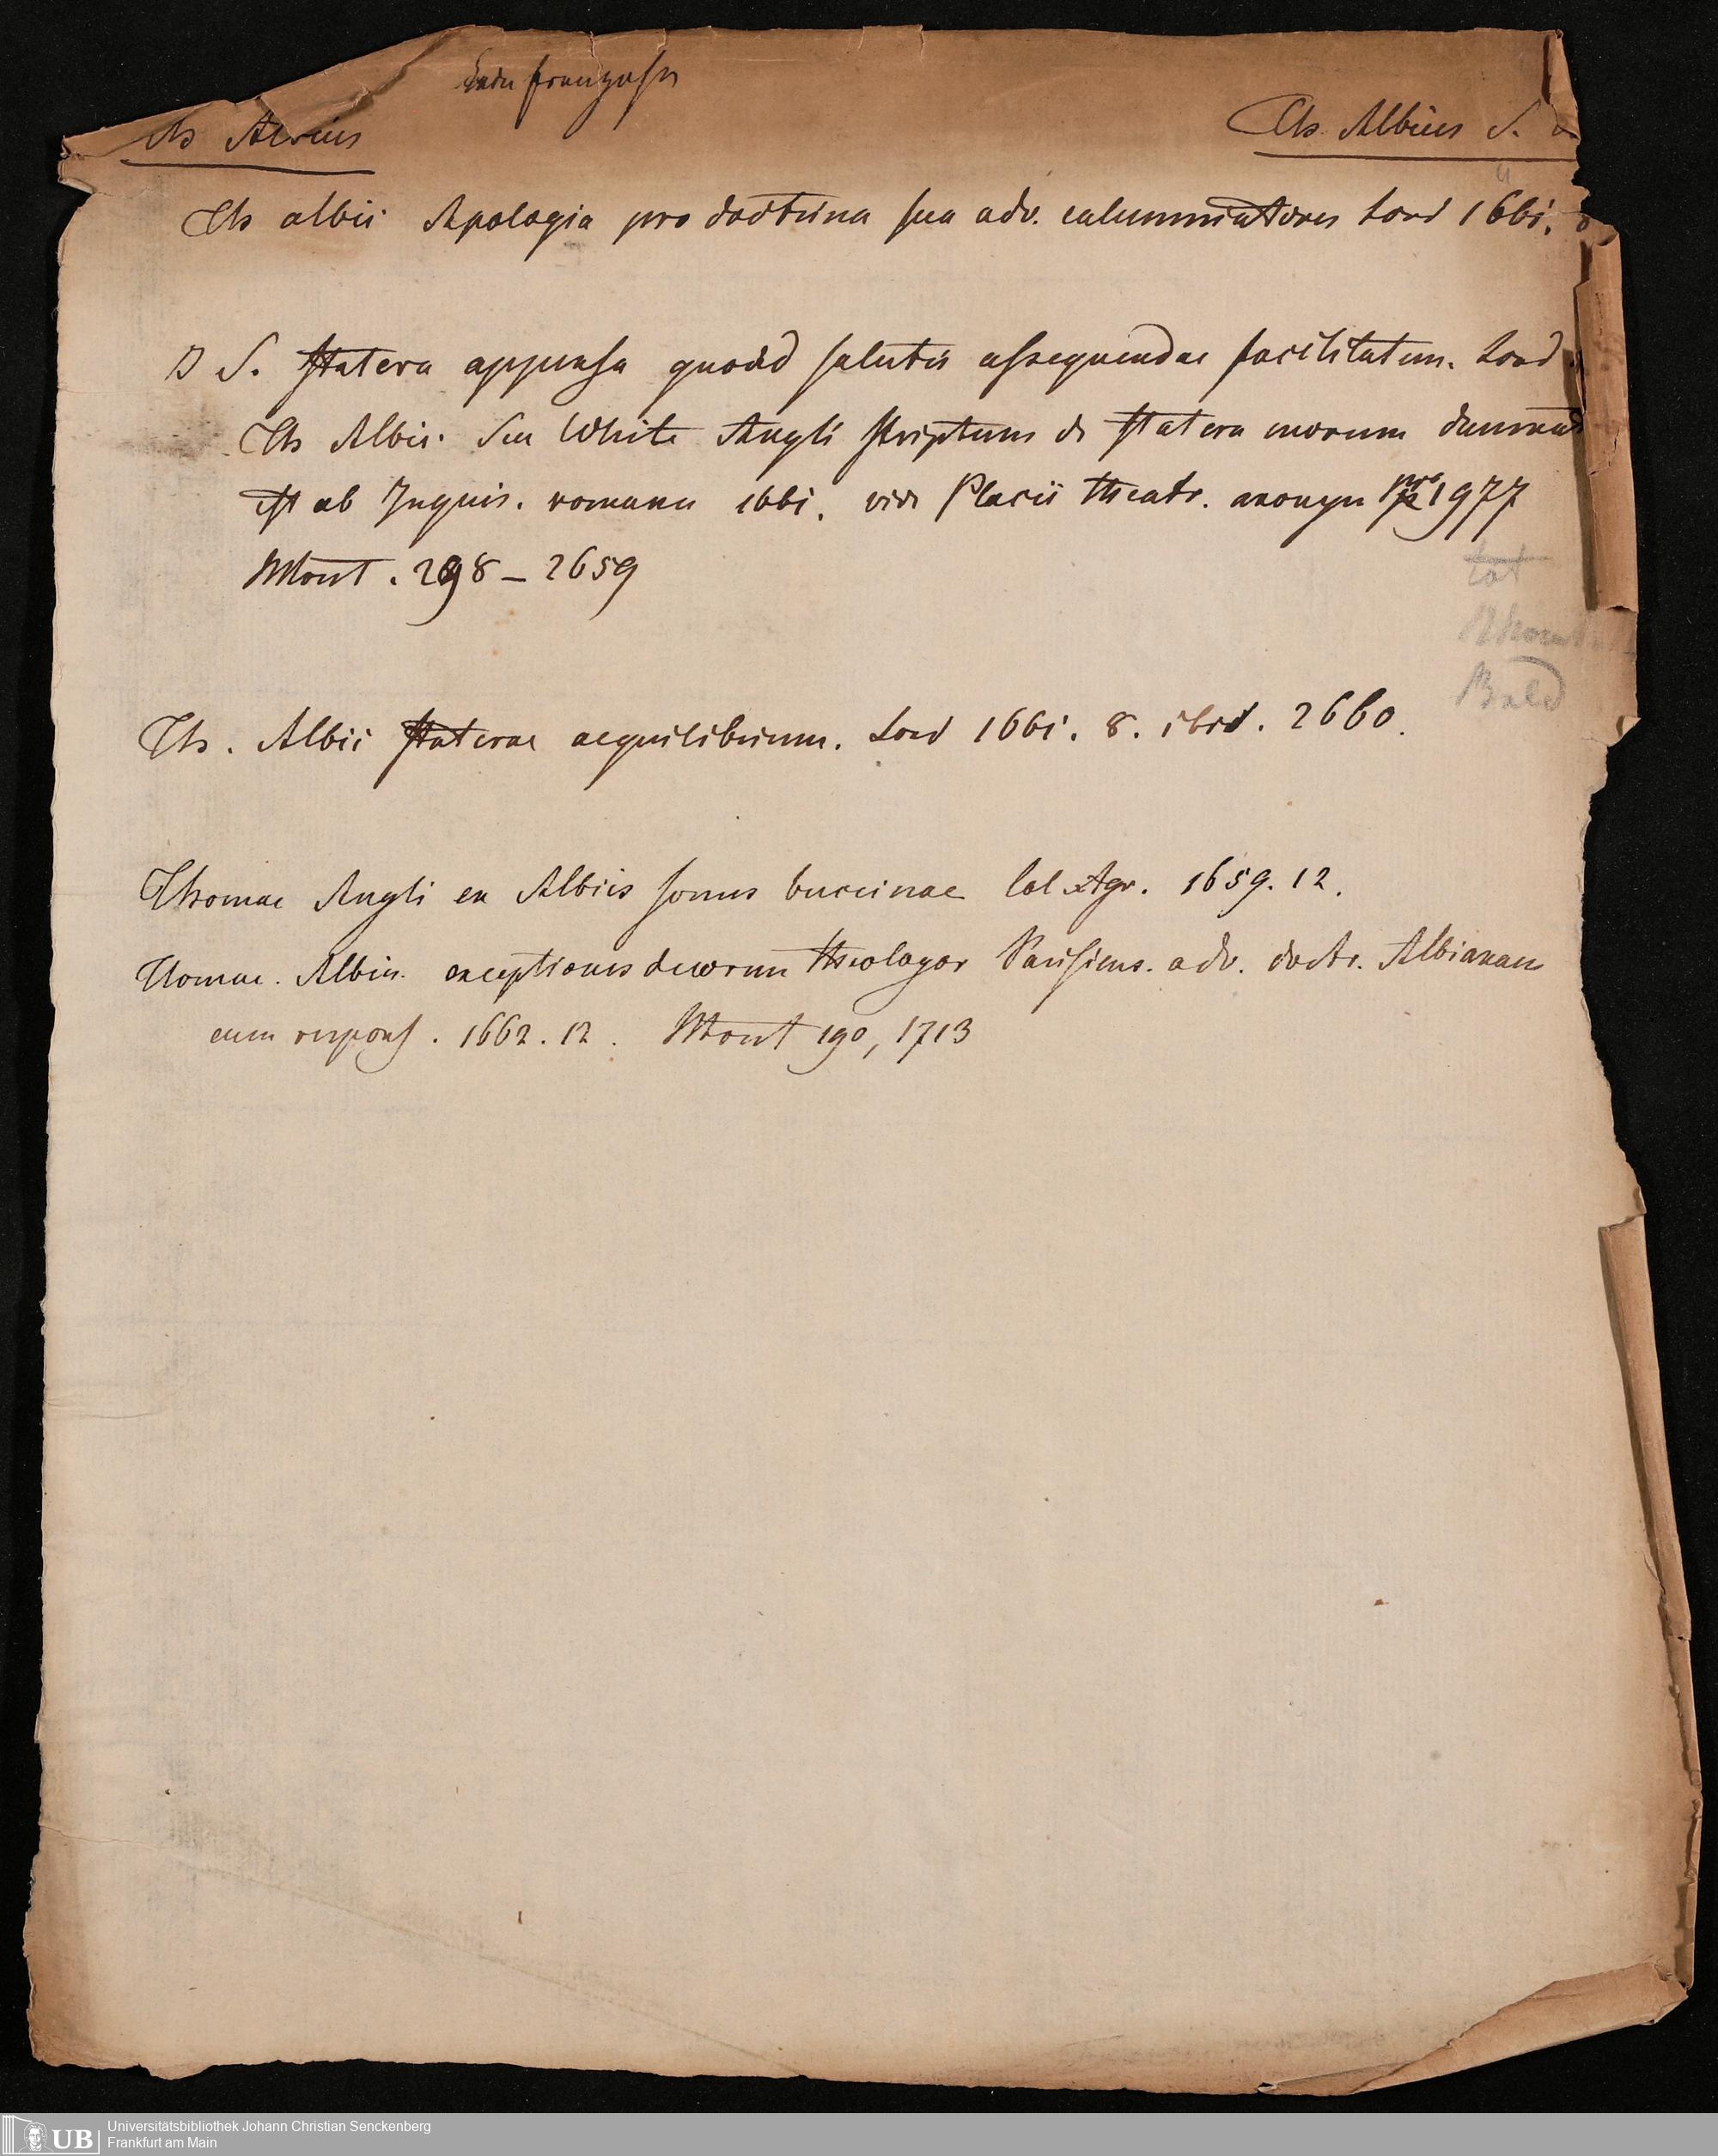 Ende franzosen
Th Albius
Th. Albius S.
Th albii Apologia pro doctrina sua adv. calumniatores Lond 1661. 8
D S. statera appensa quoad salutis assequendae facilitatem. Lond
Th Albii. Seu White Angli scriptum de statera morum damnat
est ab Inquis. romana 1661. vide Placii theatr. anonym pro 1977
Mont. 298 – 2659
tot
Bald
Th. Albii staterae aequilibrium. Lond 1661. 8. ibid. 2660.
Thomae Angli ex Albiis sonus buccinae Col Agr. 1659. 12.
Thomae. Albii. exceptiones duorum theologor Parisiens. adv. doctr. Albianam
cum respons. 1662. 12. Mont 190, 1713
UB
Universitätsbibliothek Johann Christian Senckenberg
Frankfurt am Main